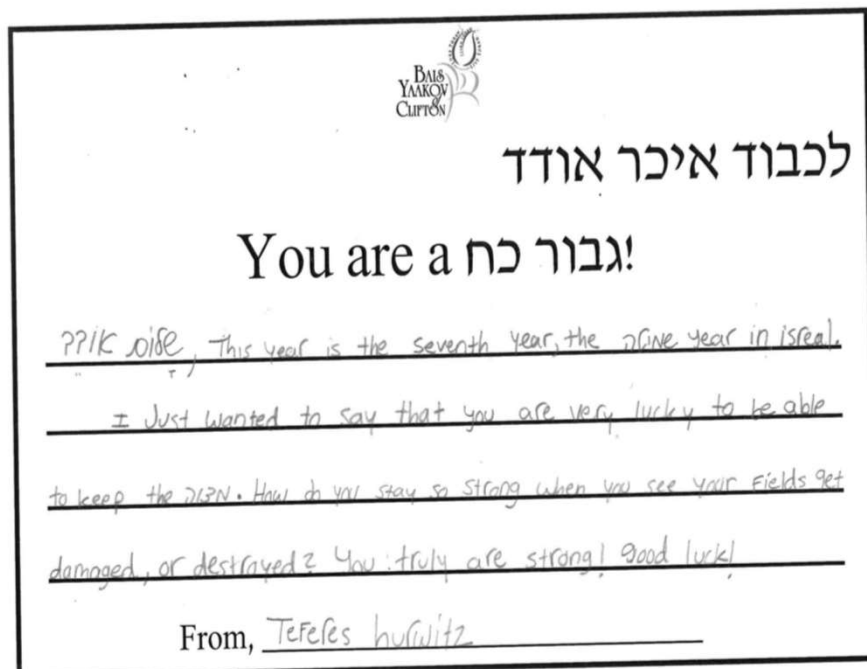 BAIS
YAAKOV
OF
CLIFTON
לכבוד איכר אודד
You are a גבור כח!
שלום אודד, This year is the seventh year, the שמיטה year in isreal.
I Just wanted to say that you are very lucky to be able
to keep the מצוה. How do you stay so strong when you see your Fields get
damaged, or destrayed? You truly are strong! Good luck!
From, Teferes hurwitz